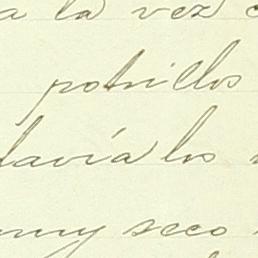 a la vez
potrillos
davía los
muy seco